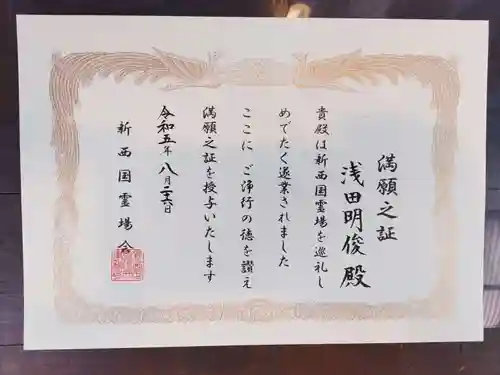 満願之証
浅田明俊殿
貴殿は新西国霊場を巡礼し
めでたく遂業されました
ここに ご浄行の徳を讃え
満願之証を授与いたします
令和五年八月二十六日
新西国霊場会